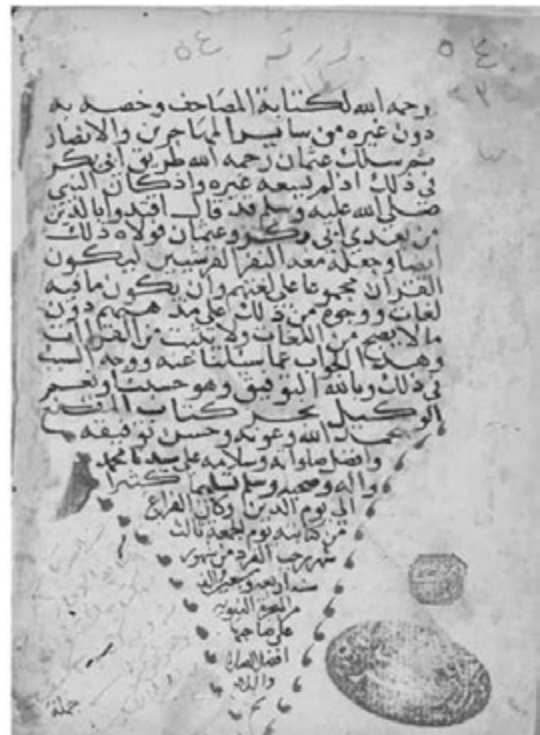 رحمه الله لكتابة المصاحف وخصه به
دون غيره من ساير المهاجرين والانصار
ثم سلك عثمان رحمه الله طريق ابي بكر
في ذلك اذ لم يسعه غيره واذ كان النبي
صلى الله عليه وسلم قد قال اقتدوا بالذين
من بعدي ابي بكر وعثمان فولاه ذلك
ايضا وجعل معه النفر القرشيين ليكون
القران مجموعا على لغتهم وان يكون ما فيه
لغات ووجوه من ذلك على مذهبهم دون
ما لا يصح من اللغات ولا يثبت من القراات
وهذا الجواب عما سيلنا عنه ووجه السبب
في ذلك وبالله التوفيق وهو حسبنا ونعم
الوكيل نجز كتاب المقنع
بحمد الله وعونه وحسن توفيقه
وافضل صلواته وسلامه على سيدنا محمد
واله وصحبه وسلم تسليما كثيرا
الى يوم الدين وكان الفراغ
من كتابته يوم الجمعة ثالث
شهر رجب الفرد من شهور
سنة اربعة وسبعين
من الهجرة النبوية
على صاحبها
افضل الصلاة
والسلام
حملة